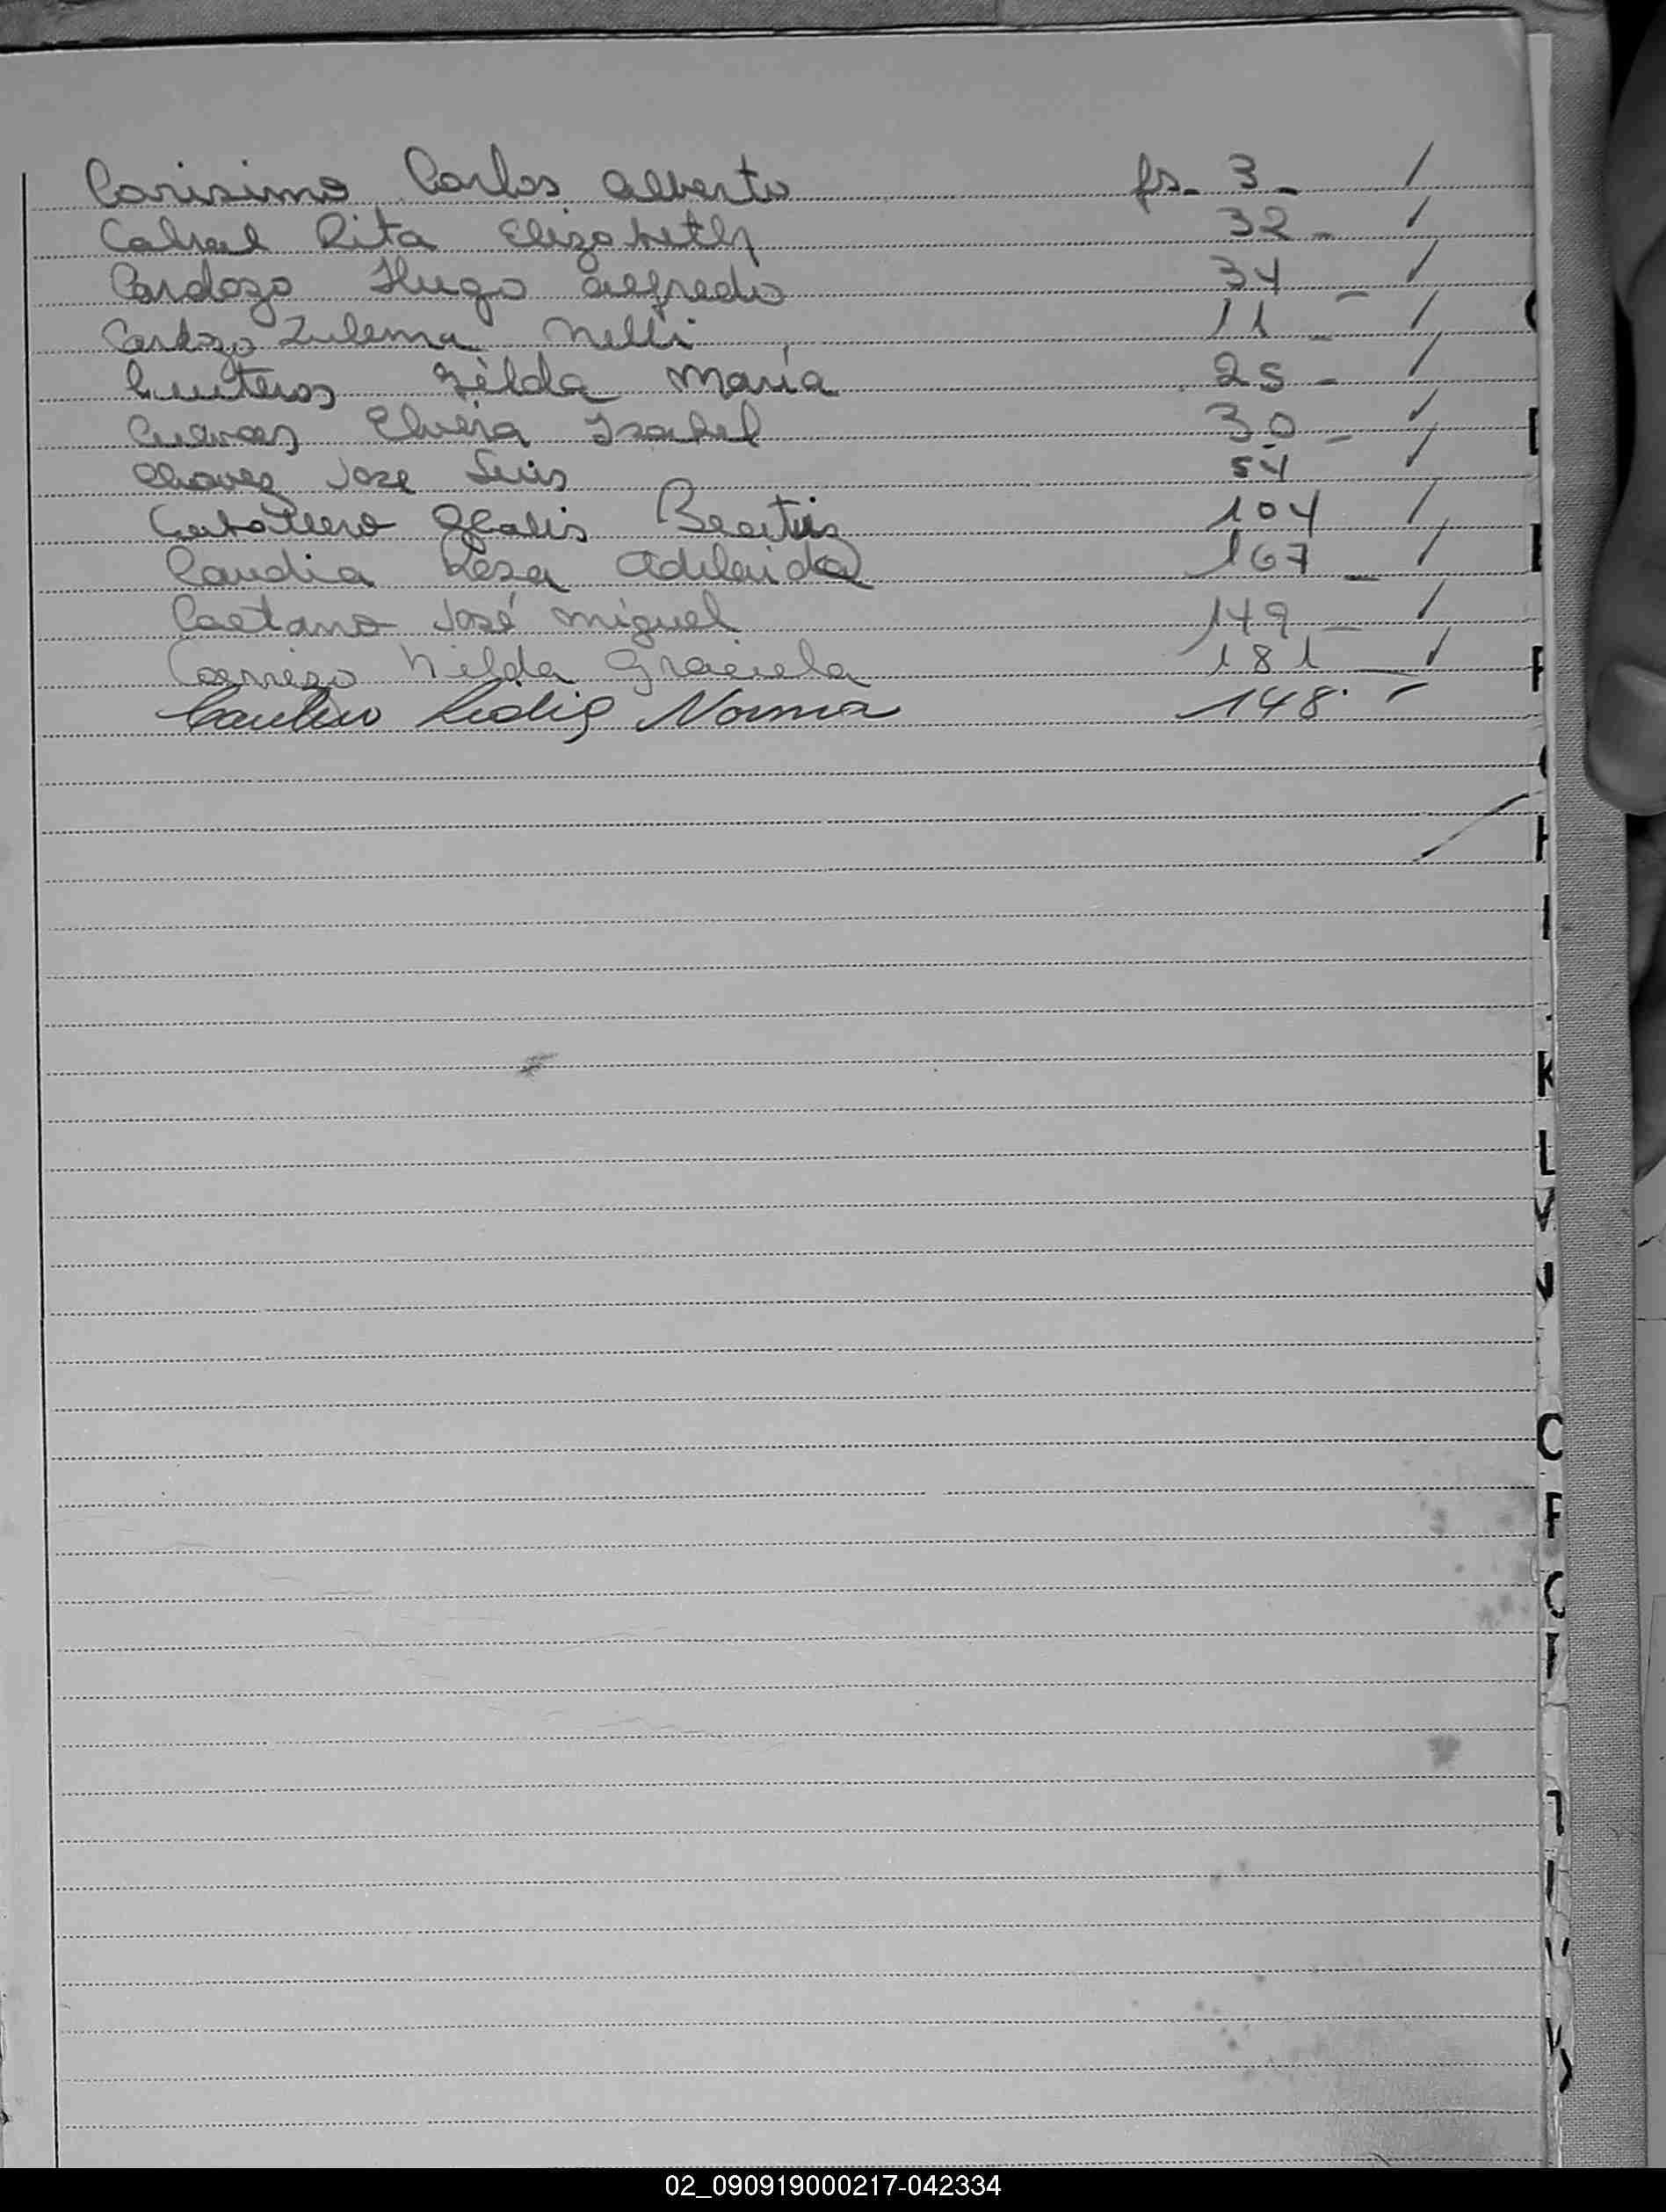 Carisimo Carlos Alberto fs. 3 -
Cabral Rita Elizabeth 32 -
Cardozo Hugo Alfredo 34 -
Cardozo Zulema Nelli 11 -
Zelda María 25 -
Cuevas Elvira Isabel 30 -
Chavez Jose Luis 54
Caballero Gladis Beatris 104
Candia Rosa Adelaida 167 -
Caetano José Miguel 149 -
Carrizo Nilda Graciela 181
Lidia Norma 148 -
K
L
02_090919000217-042334